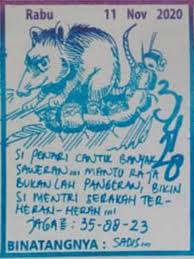 Rabu 11 Nov 2020
SI PENARI CANTIK BANJIR
SAWERAN... MANTU RAJA
BUKANLAH PANGERAN, BIKIN
SI MENTRI SERAKAH TER-
HERAN-HERAN!!!
JAGA2: 35-88-23
BINATANGNYA: SADIS...